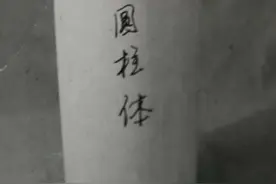 圆柱体